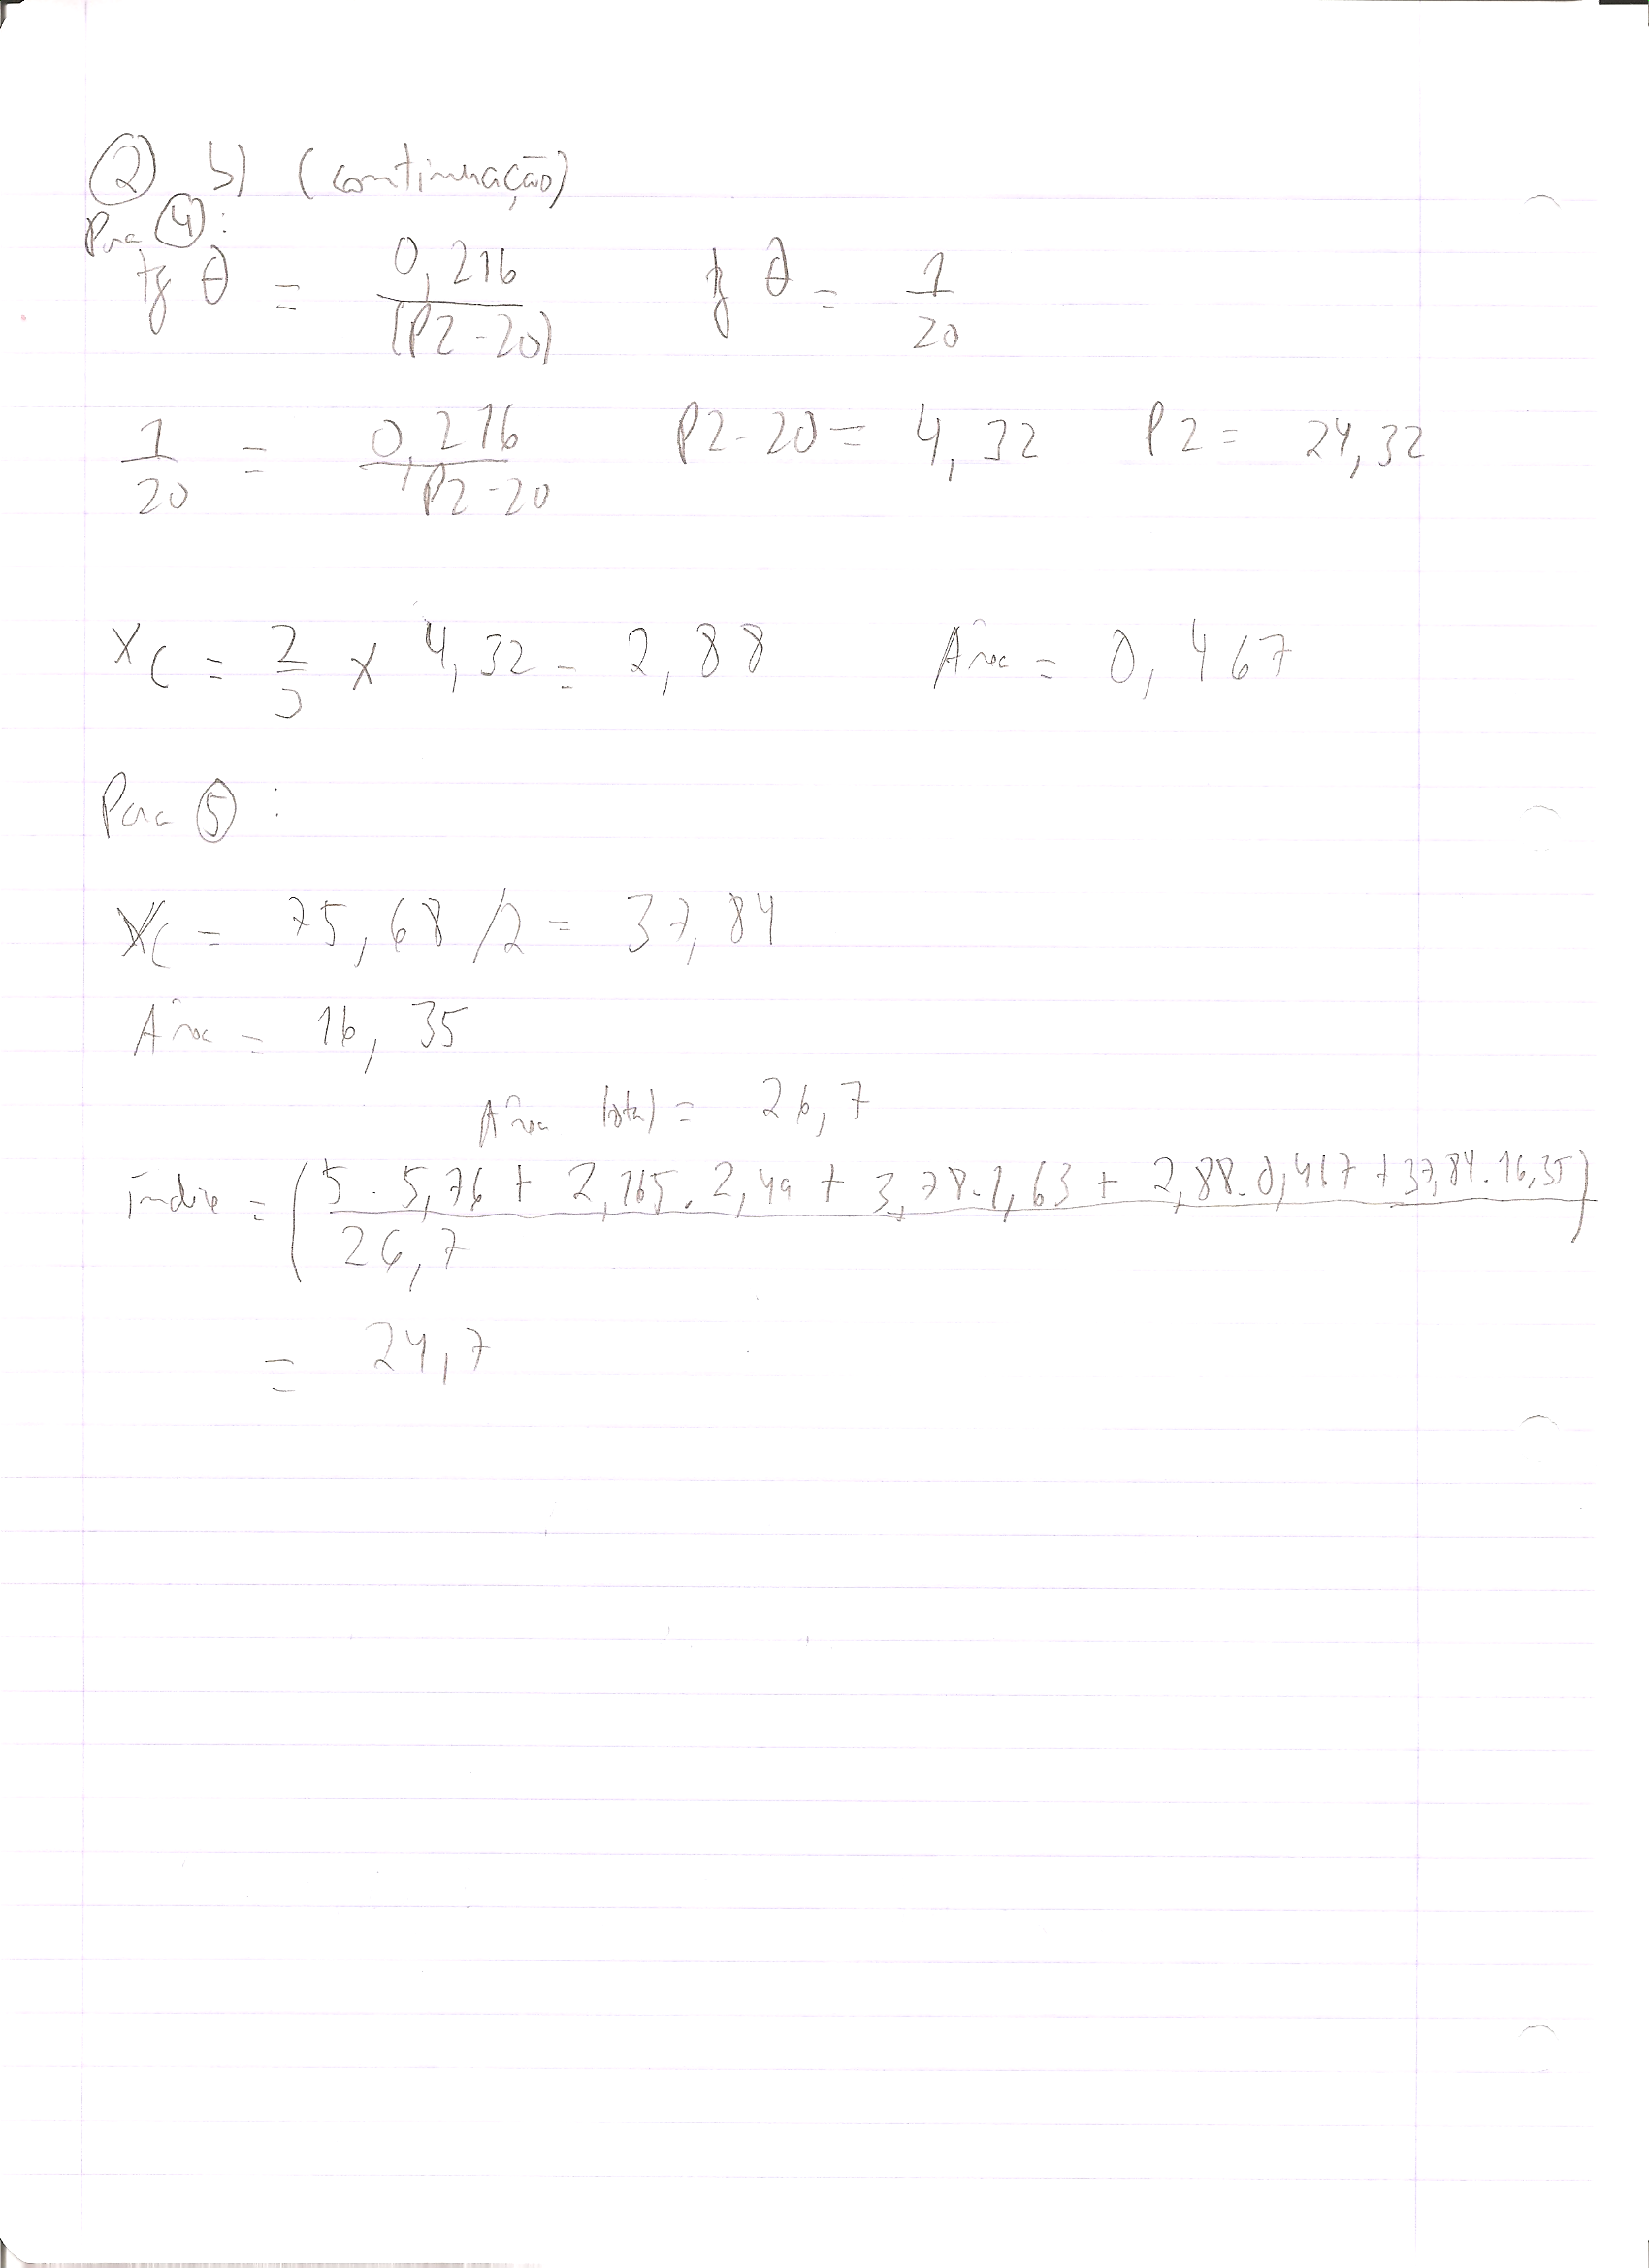 ② b) (continuação)
Para ④:
tg θ = 0,216/(P2-20) tg θ = 1/20
1/20 = 0,216/P2-20 P2-20 = 4,32 P2 = 24,32
XC = 2/3 x 4,32 = 2,88 Área = 0,467
Para ⑤:
XC = 75,68/2 = 37,84
Área = 16,35
Área total = 26,7
Índice = (5.5,76 + 2,165.2,49 + 3,78.1,63 + 2,88.0,467 + 37,84.16,35)/26,7
= 24,7